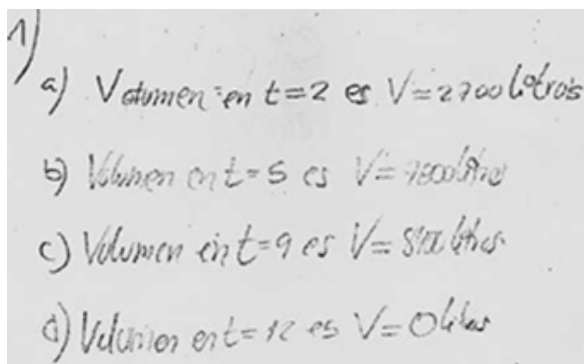 1)
a) Volumen en t=2 es V=2700 litros
b) Volumen en t=5 es V=
c) Volumen en t=9 es V= litros
d) Volumen en t=12 es V=0 litros